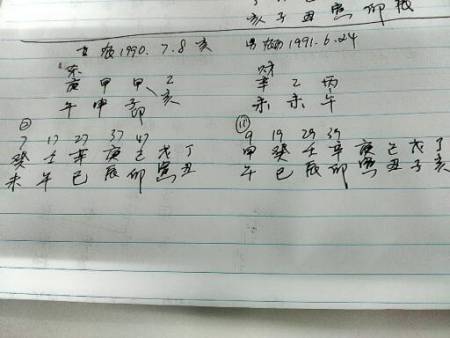 亥 子 丑 寅 卯 辰
女 1990.7.8 亥
男 1991.6.24
庚 甲 甲 乙
午 申 子 亥
卯
辛 乙 丙
未 未 午
7 17 27 37 47
癸 壬 辛 庚 己 戊 丁
未 午 巳 辰 卯 寅 丑
9 19 29 39
甲 癸 壬 辛 庚 己 戊 丁
午 巳 辰 卯 寅 丑 子 亥